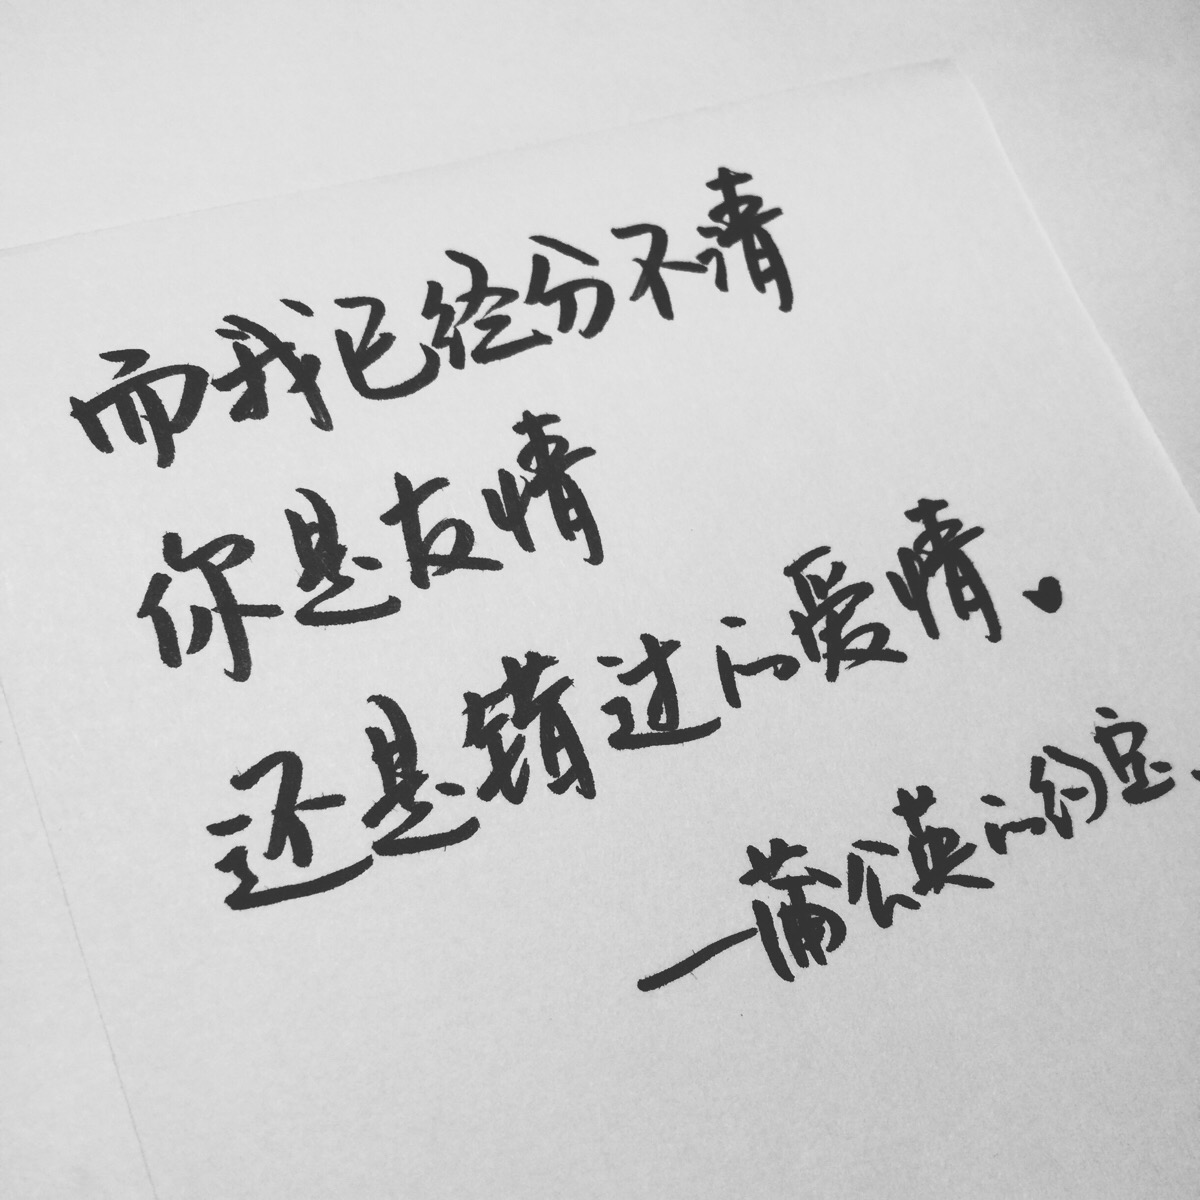 而我已经分不清
你是友情
还是错过的爱情.
—蒲公英的约定.